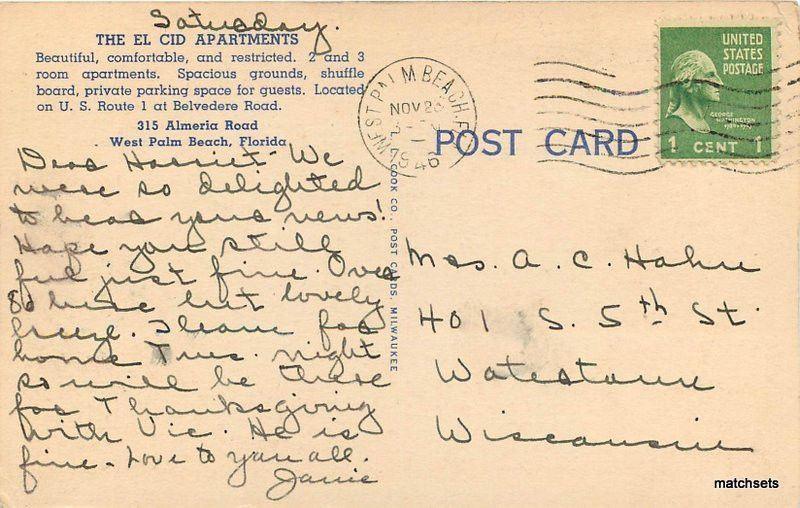 Saturday.
THE EL CID APARTMENTS
Beautiful, comfortable, and restricted. 2 and 3
room apartments. Spacious grounds, shuffle
board, private parking space for guests. Located
on U. S. Route 1 at Belvedere Road.
315 Almeria Road
West Palm Beach, Florida
Dear Harriet - We
were so delighted
to hear your news!
Hope you still
feel just fine. Over
80 here but lovely
breeze. I leave for
home Tues. night
so will be there
for Thanksgiving
with Vic. He is
fine - Love to you all.
Janie
COOK CO., POST CARDS, MILWAUKEE
WEST PALM BEACH, F
NOV 2
1946
POST CARD
UNITED
STATES
POSTAGE
GEORGE
WASHINGTON
1 CENT 1
Mrs. A. C. Hahn
401 S. 5th St.
Watertown
Wisconsin
matchsets